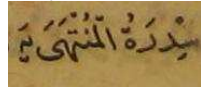 سِدْرَةُ الْمُنْتَهَىَ